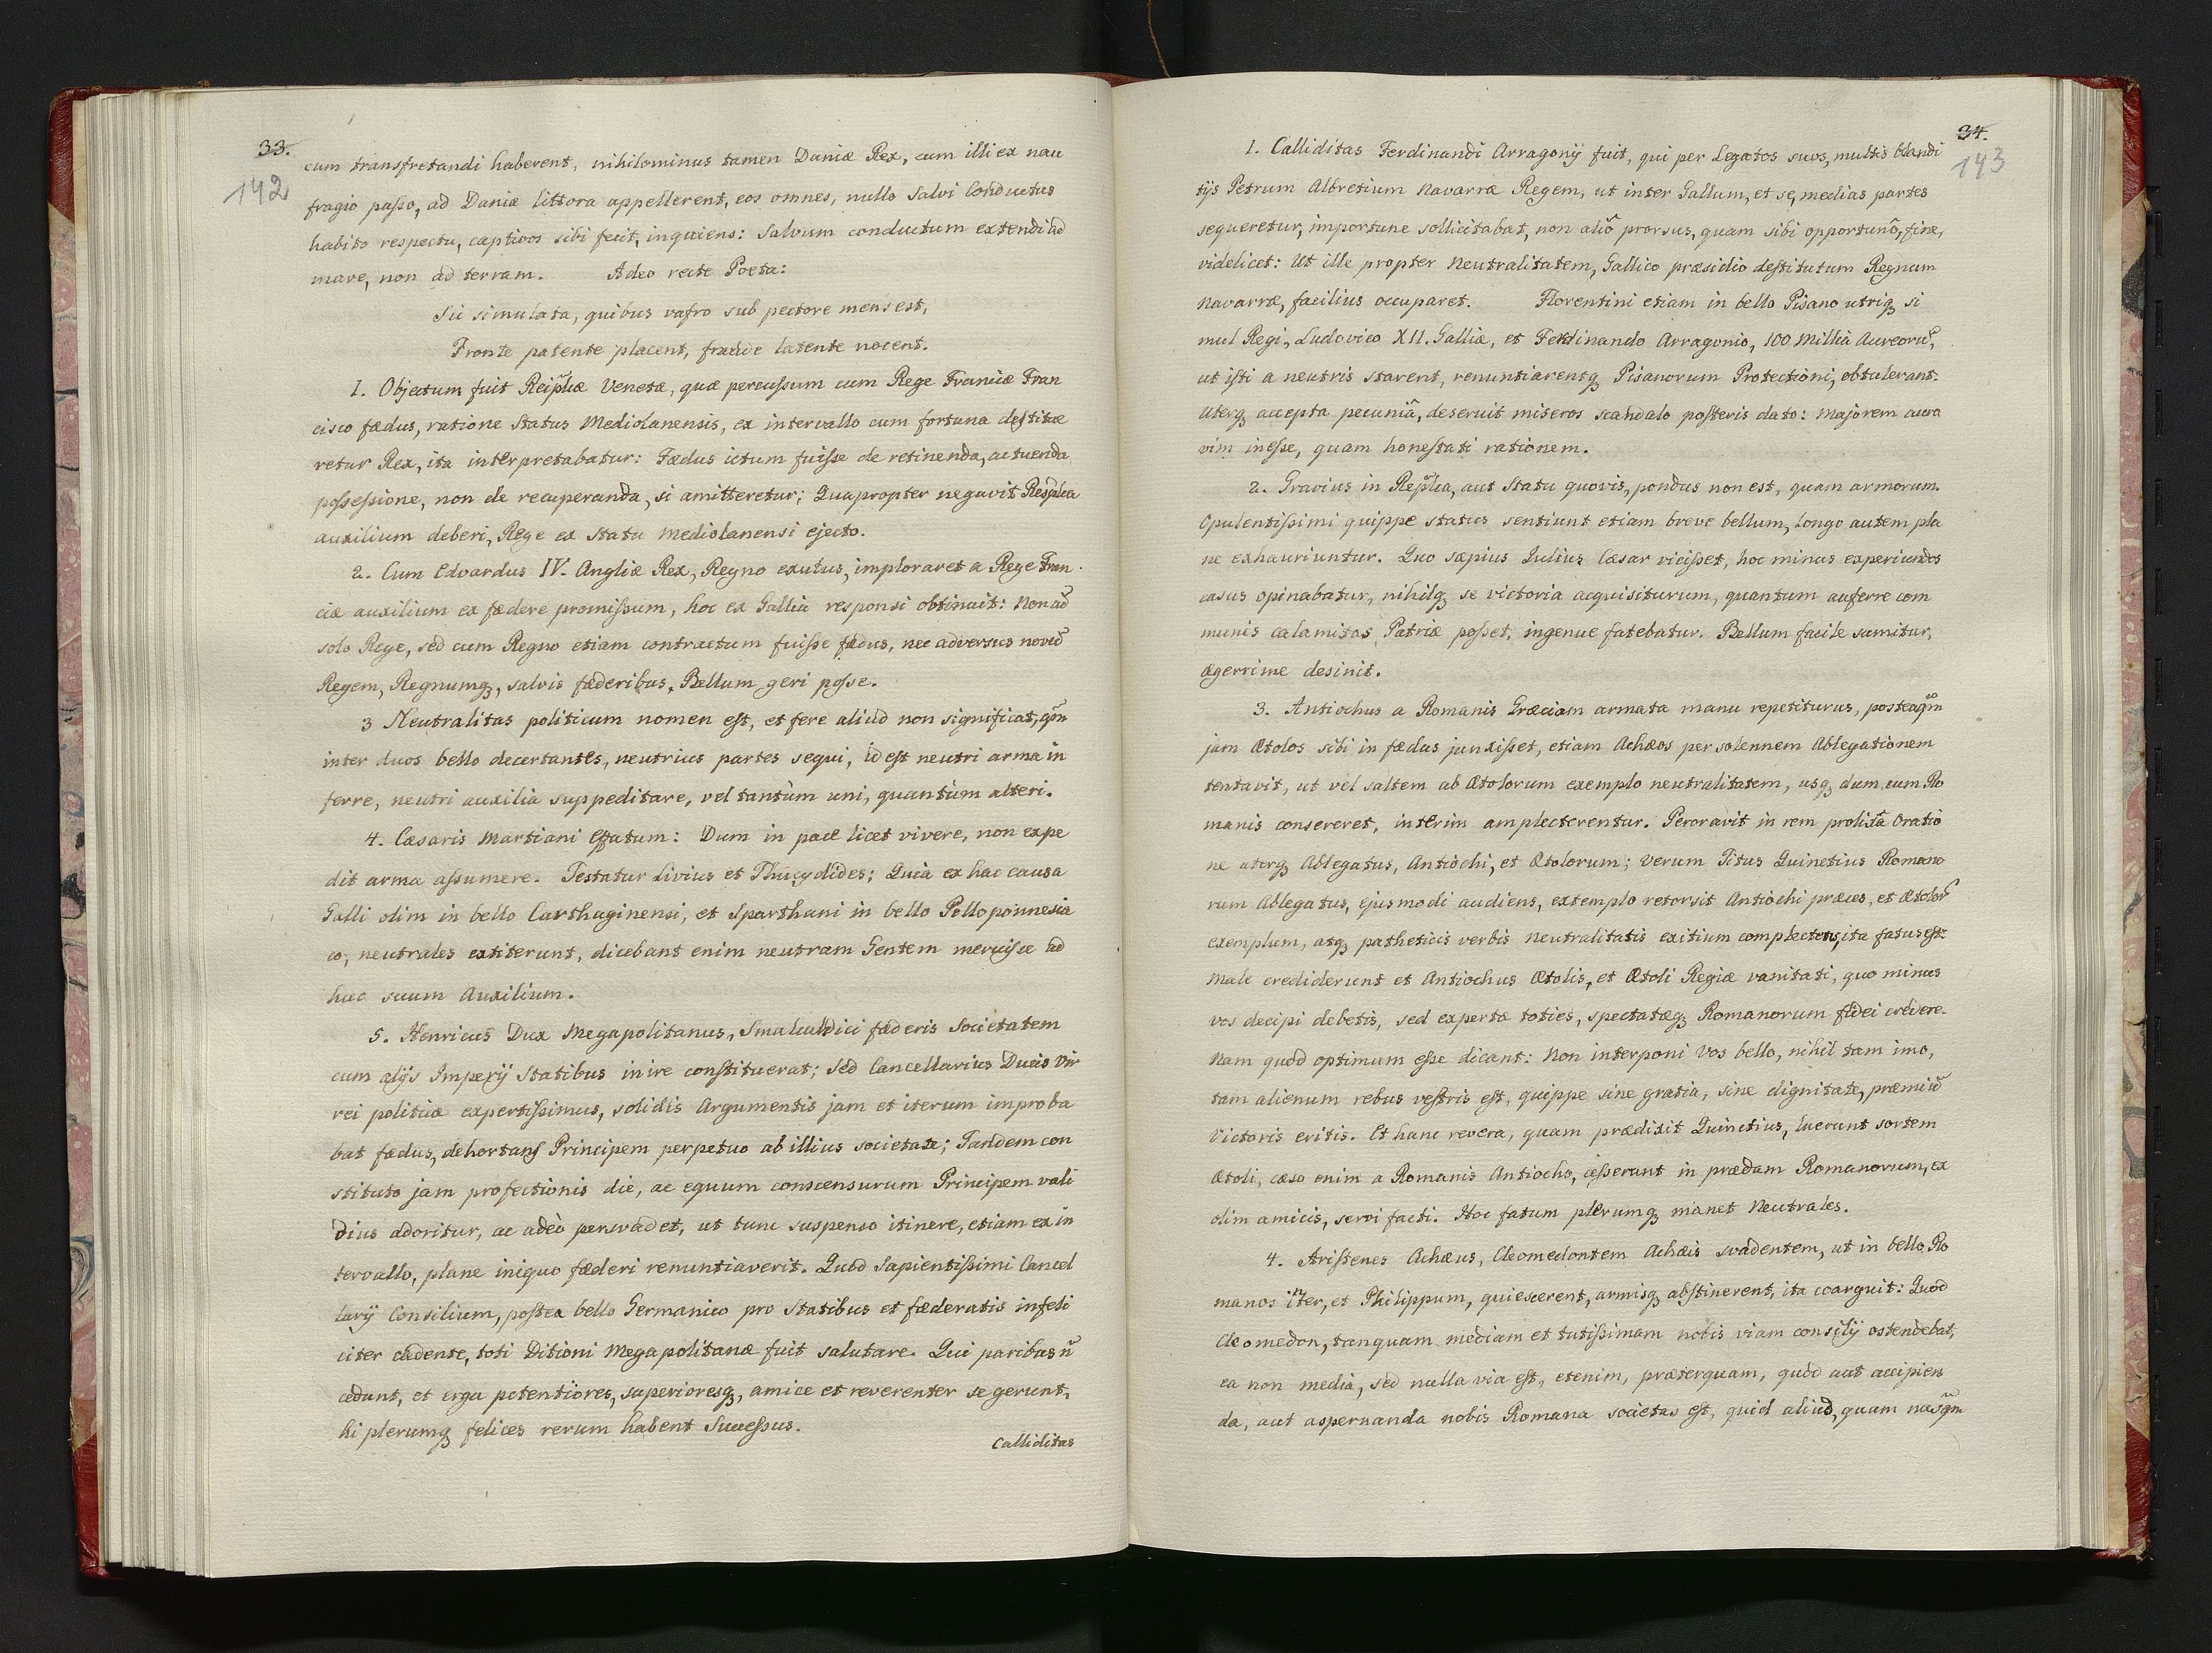 33.
142
cum transfretandi haberent, nihilominus tamen Daniæ Rex, cum illi ex nau
fragio passo, ad Daniæ littora appellerent, eos omnes, nullo Salvi Conductus
habito respectu, captivos sibi fecit, inquiens: Salvum conductum extendi ad
mare, non ad terram. Adeo recte Poeta:
Sic simulata, quibus vafro sub pectore mens est,
Fronte patente placent, fraude latente nocent.
1. Objectum fuit Reiplicæ Venetæ, quæ percussum cum Rege Franciæ Fran
cisco fædus, ratione Status Mediolanensis, ex intervallo cum fortuna destitue
retur Rex, ita interpretabatur: Fædus ictum fuisse de retinenda, ac tuenda
possessione, non de recuperanda, si amitteretur; Quapropter negavit Resplica
auxilium deberi, Rege ex Statu Mediolanensi ejecto.
2. Cum Edvardus IV. Angliæ Rex, Regno exutus, imploraret a Rege Fran
ciæ auxilium ex fædere promissum, hoc ex Gallia responsi obtinuit: Non cũ
solo Rege, sed cum Regno etiam contractum fuisse fædus, nec adversus novũ
Regem, Regnumq, salvis fæderibus, Bellum geri posse.
3 Neutralitas politicum nomen est, et fere aliud non significat, qm̃
inter duos bello decertantes, neutrius partes sequi, id est neutri arma in
ferre, neutri auxilia suppeditare, vel tantùm uni, quantùm alteri.
4. Cæsaris Martiani Effatum: Dum in pace licet vivere, non expe
dit arma assumere. Testatur Livius et Thucydides; Quia ex hac causa
Galli olim in bello Carthaginensi, et Sparthani in bello Pelloponnesia
co, neutrales extiterunt, dicebant enim neutram Gentem meruisse ad
huc suum Auxilium.
5. Henricus Dux Megapolitanus, Smalcaldici fæderis Societatem
cum alijs Imperij Statibus inire constituerat; sed Cancellarius Ducis Vir
rei politicæ expertissimus, solidis Argumentis jam et iterum improba
bat fædus, dehortans Principem perpetuo ab illius societate; Tandem con
stituto jam profectionis die, ac equum conscensurum Principem vali
dius adoritur, ac adeò persvadet, ut tunc suspenso itinere, etiam ex in
tervallo, plane iniquo fæderi renuntiaverit. Quod Sapientissimi Cancel
larij Consilium, postea bello Germanico pro Statibus et fæderatis infeli
citer cadente, toti Ditioni Megapolitanæ fuit salutare. Qui paribus ñ
cedunt, et erga potentiores, superioresq, amice et reverenter se gerunt,
hi plerumq felices rerum habent Successus.
Calliditas
34.
143
1. Calliditas Ferdinandi Arragonij fuit, qui per Legatos suos, multis blandi
tijs Petrum Albretium Navarræ Regem, ut inter Gallum, et se, medias partes
sequeretur, importune sollicitabat, non aliô prorsus, quam sibi opportunô, fine,
videlicet: Ut ille propter Neutralitatem, Gallico præsidio destitutum Regnum
Navarræ, facilius occuparet. Florentini etiam in bello Pisano utriq si
mul Regi, Ludovico XII. Galliæ, et Ferdinando Arragonio, 100 Millia Aureorũ,
ut isti a neutris starent, renuntiarentq Pisanorum Protectioni, obtulerant.
Uterq accepta pecuniâ, deseruit miseros scandalo posteris dato: majorem auro
vim inesse, quam honestati rationem.
2. Gravius in Replica, aut Statu quovis, pondus non est, quam armorum.
Opulentissimi quippe status sentiunt etiam breve bellum, longo autem pla
ne exhauriuntur. Quo sæpius Julius Cæsar vicisset, hoc minus experiundos
casus opinabatur, nihilq se victoria acquisiturum, quantum auferre com
munis calamitas Patriæ posset, ingenue fatebatur. Bellum facile sumitur,
ægerrime desinit.
3. Antiochus a Romanis Græciam armata manu repetiturus, posteaqm̃
jam Ætolos sibi in fædus junxisset, etiam Achæos per solennem Ablegationem
tentavit, ut vel saltem ab Ætolorum exemplo neutralitatem, usq dum cum Ro
manis consereret, interim amplecterentur. Peroravit in rem prolixâ Oratio
ne uterq Ablegatus, Antiochi, et Ætolorum; verum Titus Quinctius Romano
rum Ablegatus, ejusmodi audiens, extemplo retorsit Antiochi præces, et Ætolorũ
exemplum, atq patheticis verbis Neutralitatis exitium complectens, ita fatus est:
Male crediderunt et Antiochus Ætolis, et Ætoli Regiæ vanitati, quo minus
vos decipi debetis, sed expertæ toties, spectatæq Romanorum fidei credere.
Nam quod optimum esse dicant: Non interponi Vos bello, nihil tam imo,
tam alienum rebus vestris est, quippe sine gratia, sine dignitate, præmiũ
Victoris eritis. Et hanc revera, quam prædixit Quinctius, luerunt sortem
Ætoli, cæso enim a Romanis Antiocho, cesserunt in prædam Romanorum, ex
olim amicis, servi facti. Hoc fatum plerumq manet Neutrales.
4. Aristenes Achæus, Cleomedontem Achæis svadentem, ut in bello Ro
manos inter, et Philippum, quiescerent, armisq abstinerent, ita coarguit: Quod
Cleomedon, tanquam mediam et tutissimam nobis viam consilij ostendebat,
ea non media, sed nulla via est, etenim, præterquam, quòd aut accipien
da, aut aspernanda nobis Romana societas est, quid aliud, quam nusqm̃